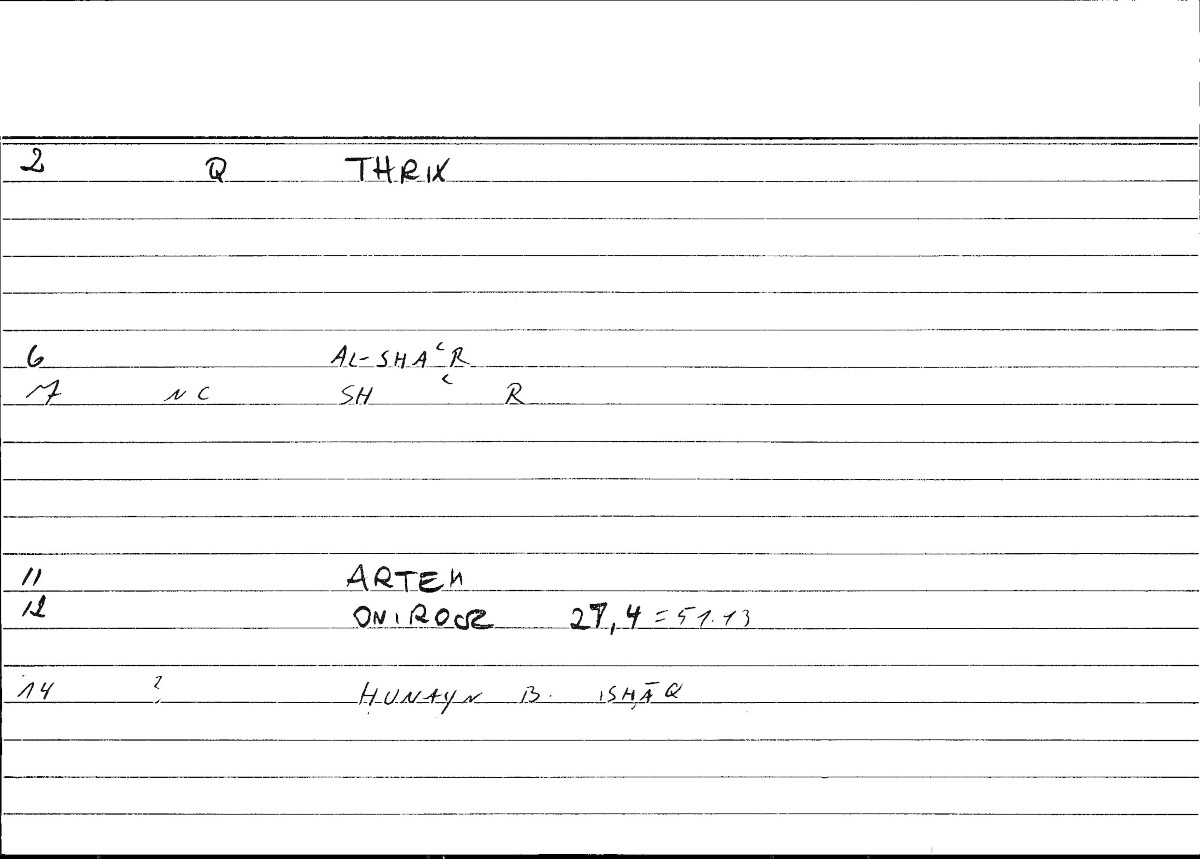 2 Q THRIX
6 AL-SHAʿR
7 NC SH ʿ R
11 ARTEM
12 ONIROCR 27,4 = 51.13
14 ? ḤUNAYN B. ISḤĀQ